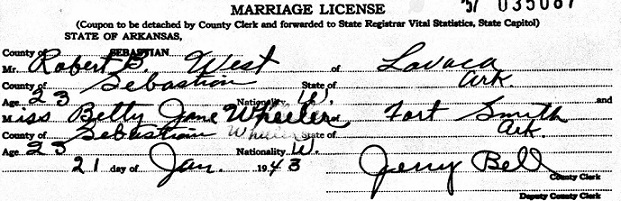 MARRIAGE LICENSE '57 035087
(Coupon to be detached by County Clerk and forwarded to State Registrar Vital Statistics, State Capitol)
STATE OF ARKANSAS,
County of SEBASTIAN
Mr. Robert B. West of Lavaca
County of Sebastian State of Ark.
Age 23 Nationality W. and
Miss Betty Jane Wheeler of Fort Smith
County of Sebastian Wheeler State of Ark.
Age 23 Nationality W.
21 day of Jan. 1943 Jerry Bell
County Clerk
Deputy County Clerk